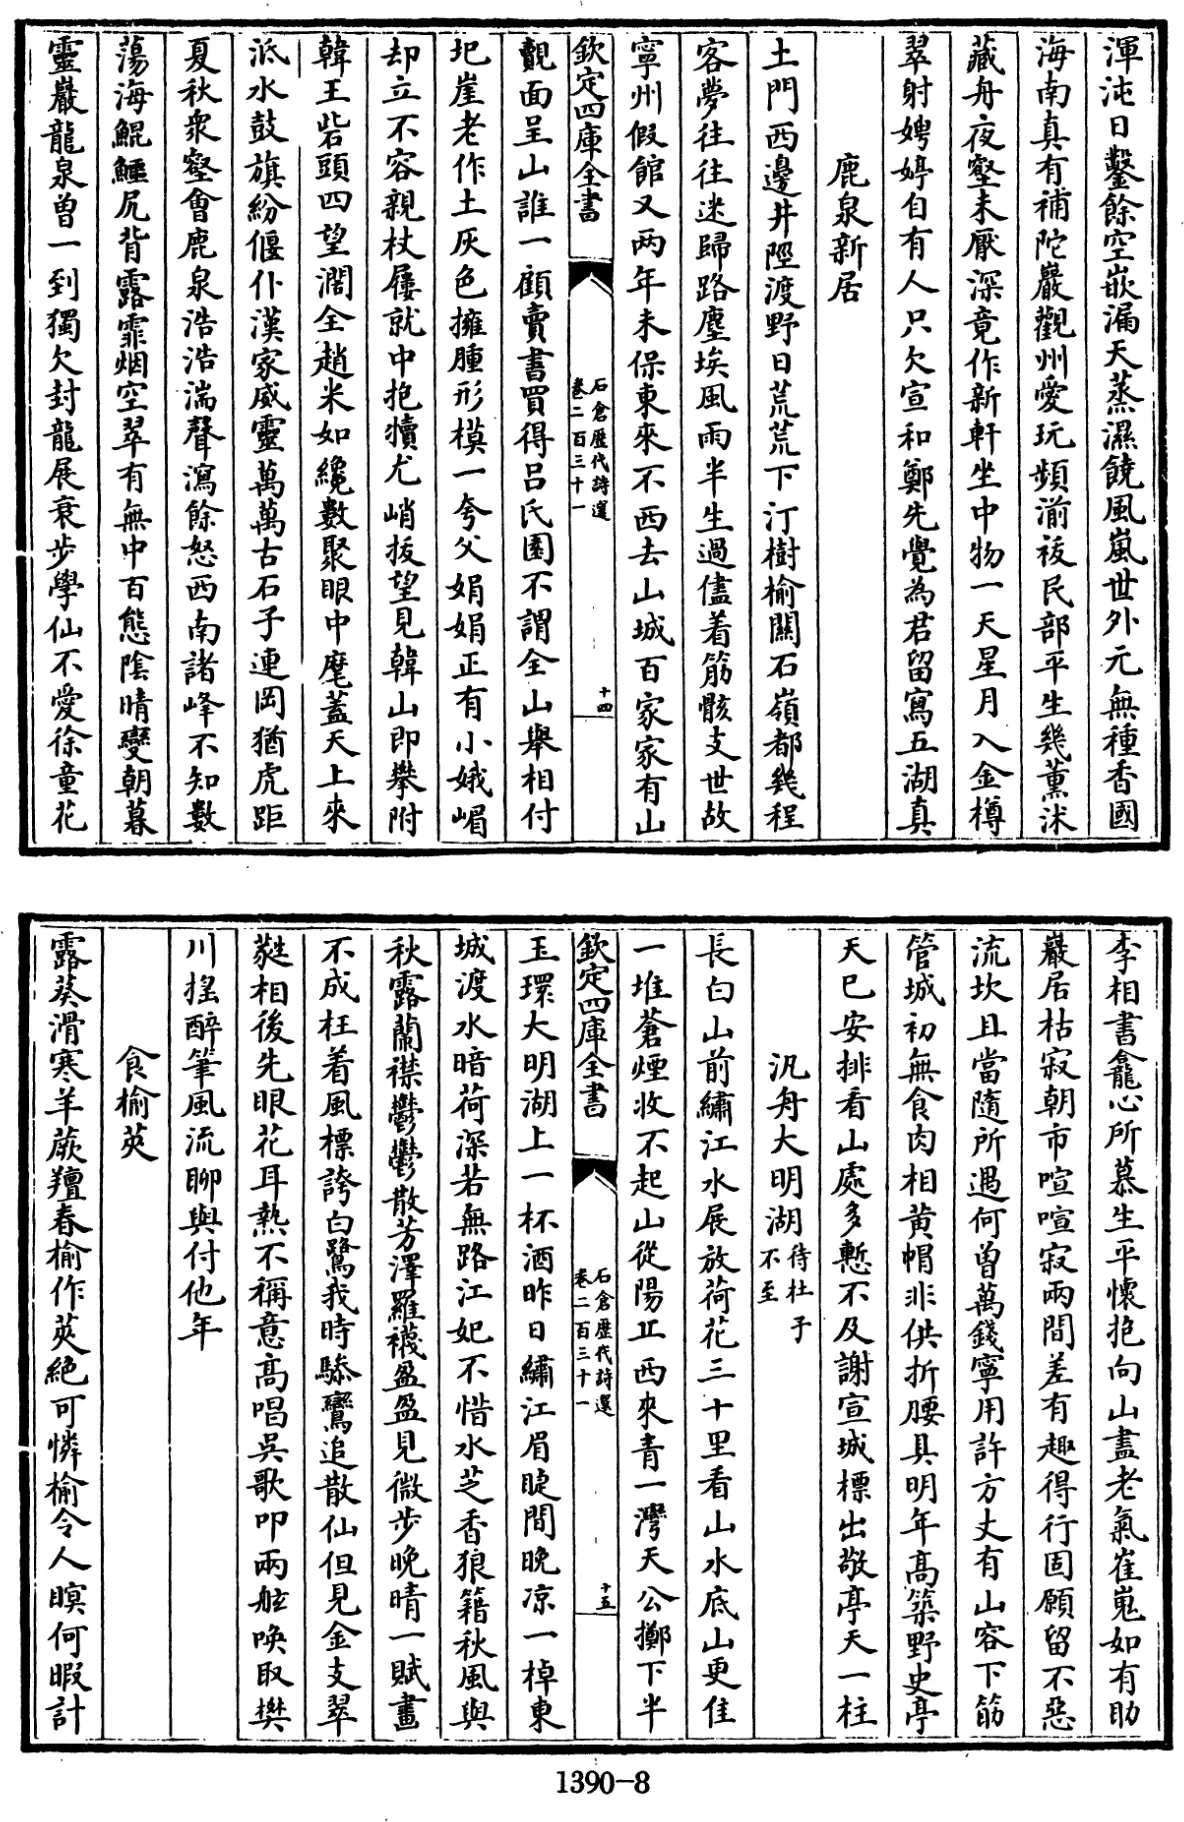 渾沌日鑿餘空嵌漏天蒸濕饒風嵐世外元無種香國
海南真有補陀巖觀州愛玩頻湔祓民部平生幾薰沐
藏舟夜壑未厭深竟作新軒坐中物一天星月入金樽
翠射娉婷自有人只欠宣和鄭先覺為君留寫五湖真
鹿泉新居
土門西邊井陘渡野日荒荒下汀樹榆關石嶺都幾程
客夢往往迷歸路塵埃風雨半生過儘着筋骸支世故
寧州假館又兩年未保東來不西去山城百家家有山
欽定四庫全書
石倉歷代詩選
卷二百三十一
十四
覿面呈山誰一顧賣書買得呂氏園不謂全山舉相付
圯崖老作土灰色擁腫形模一夸父娟娟正有小娥嵋
却立不容親杖屨就中抱犢尤峭拔望見韓山即攀附
韓王砦頭四望濶全趙米如纔數聚眼中麾蓋天上來
泜水鼓旗紛偃仆漢家威靈萬萬古石子連岡猶虎距
夏秋衆壑會鹿泉浩浩湍聲瀉餘怒西南諸峰不知數
蕩海鯤鱷尻背露霏烟空翠有無中百態陰晴變朝暮
靈巖龍泉曾一到獨欠封龍展衰步學仙不愛徐童花
李相書龕心所慕生平懷抱向山盡老氣崔嵬如有助
巖居枯寂朝市喧喧寂兩間差有趣得行固願留不惡
流坎且當隨所遇何曾萬錢寧用許方丈有山容下筯
管城初無食肉相黄帽非供折腰具明年高築野史亭
天已安排看山處多慙不及謝宣城標出敬亭天一柱
汎舟大明湖待杜子不至
長白山前繡江水展放荷花三十里看山水底山更佳
一堆蒼煙收不起山從陽丘西來青一灣天公擲下半
欽定四庫全書
石倉歷代詩選
卷二百三十一
十五
玉環大明湖上一杯酒昨日繡江眉睫間晚凉一棹東
城渡水暗荷深若無路江妃不惜水芝香狼籍秋風與
秋露蘭襟鬱鬱散芳澤羅襪盈盈見微步晚晴一賦畫
不成枉着風標誇白鷺我時驂鸞追散仙但見金支翠
蕤相後先眼花耳熱不稱意高唱吳歌叩兩舷喚取樊
川摇醉筆風流聊與付他年
食榆莢
露葵滑寒羊蕨羶春榆作莢絶可憐榆令人瞑何暇計
1390-8